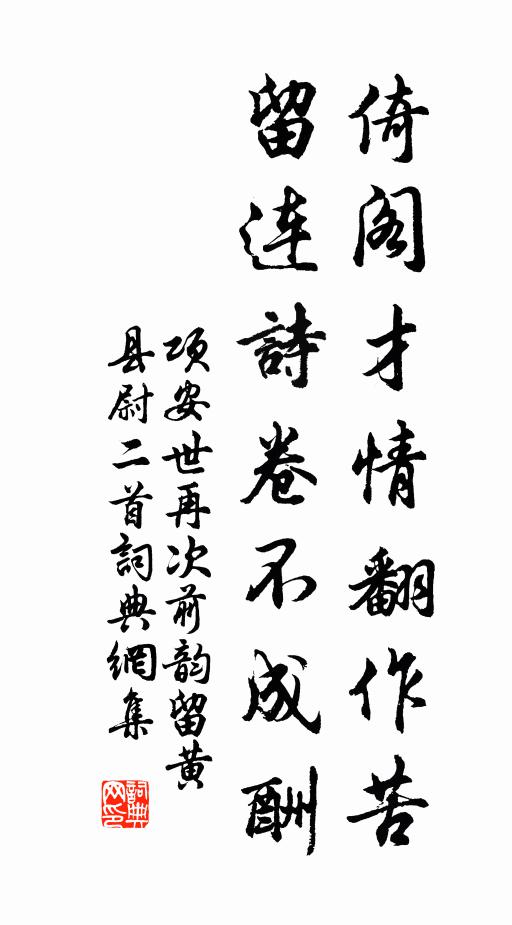 倚阁才情翻作苦
留连詩卷不成酬
项安世再次前韵留黄
县尉二首詞典網集
詞典网印